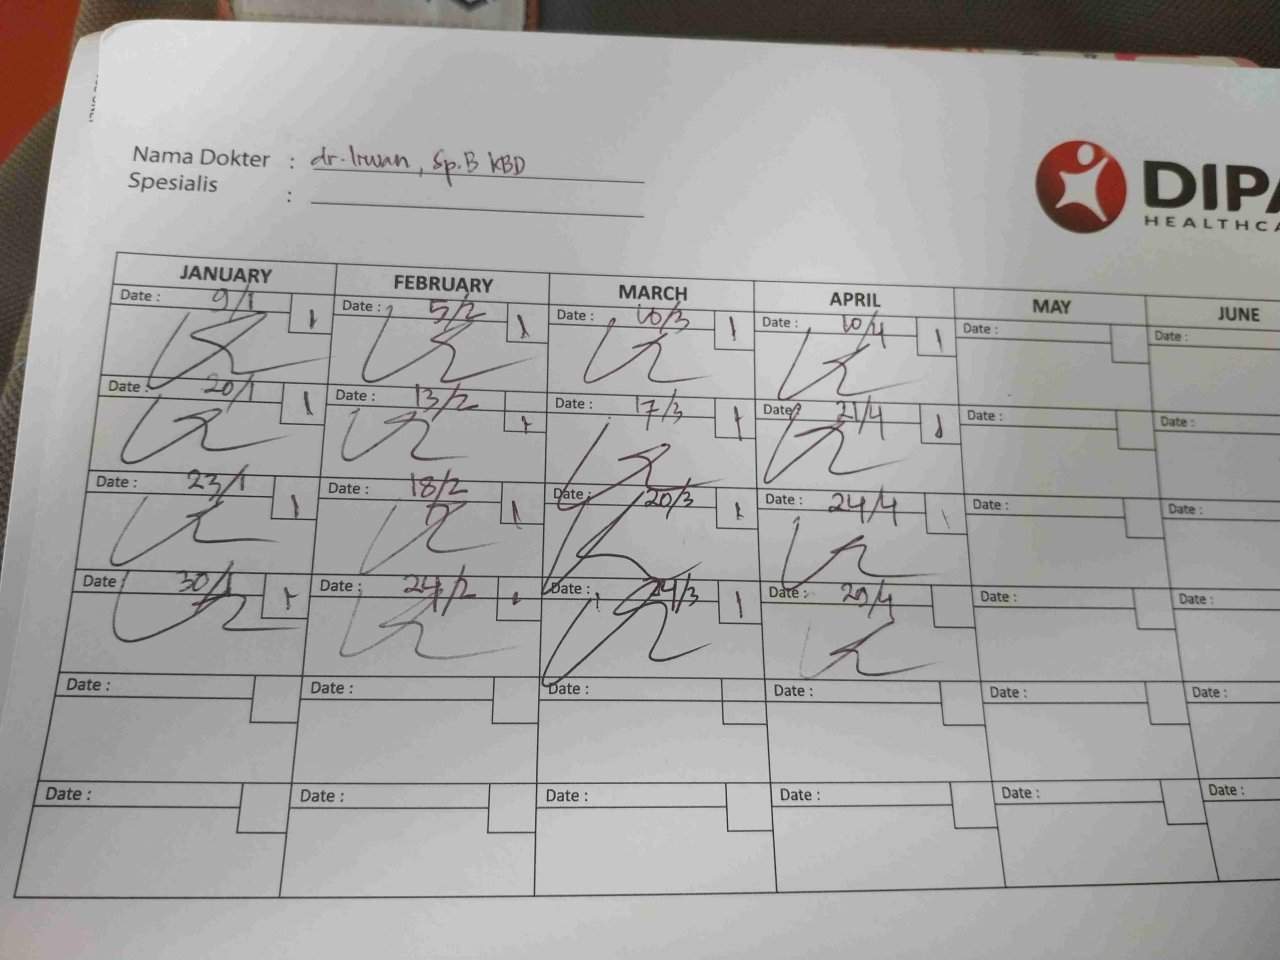 Nama Dokter : dr. Irwan, Sp.B KBD
Spesialis :
DIPA
HEALTHCA
JANUARY FEBRUARY MARCH APRIL MAY JUNE
Date : 9/1 1 Date : 5/2 1 Date : 10/3 1 Date : 10/4 1 Date : Date :
Date : 20/1 1 Date : 13/2 1 Date : 17/3 1 Date : 21/4 1 Date : Date :
Date : 23/1 1 Date : 18/2 1 Date : 20/3 1 Date : 24/4 1 Date : Date :
Date : 30/1 1 Date : 24/2 1 Date : 24/3 1 Date : 29/4 Date : Date :
Date : Date : Date : Date : Date : Date :
Date : Date : Date : Date : Date : Date :